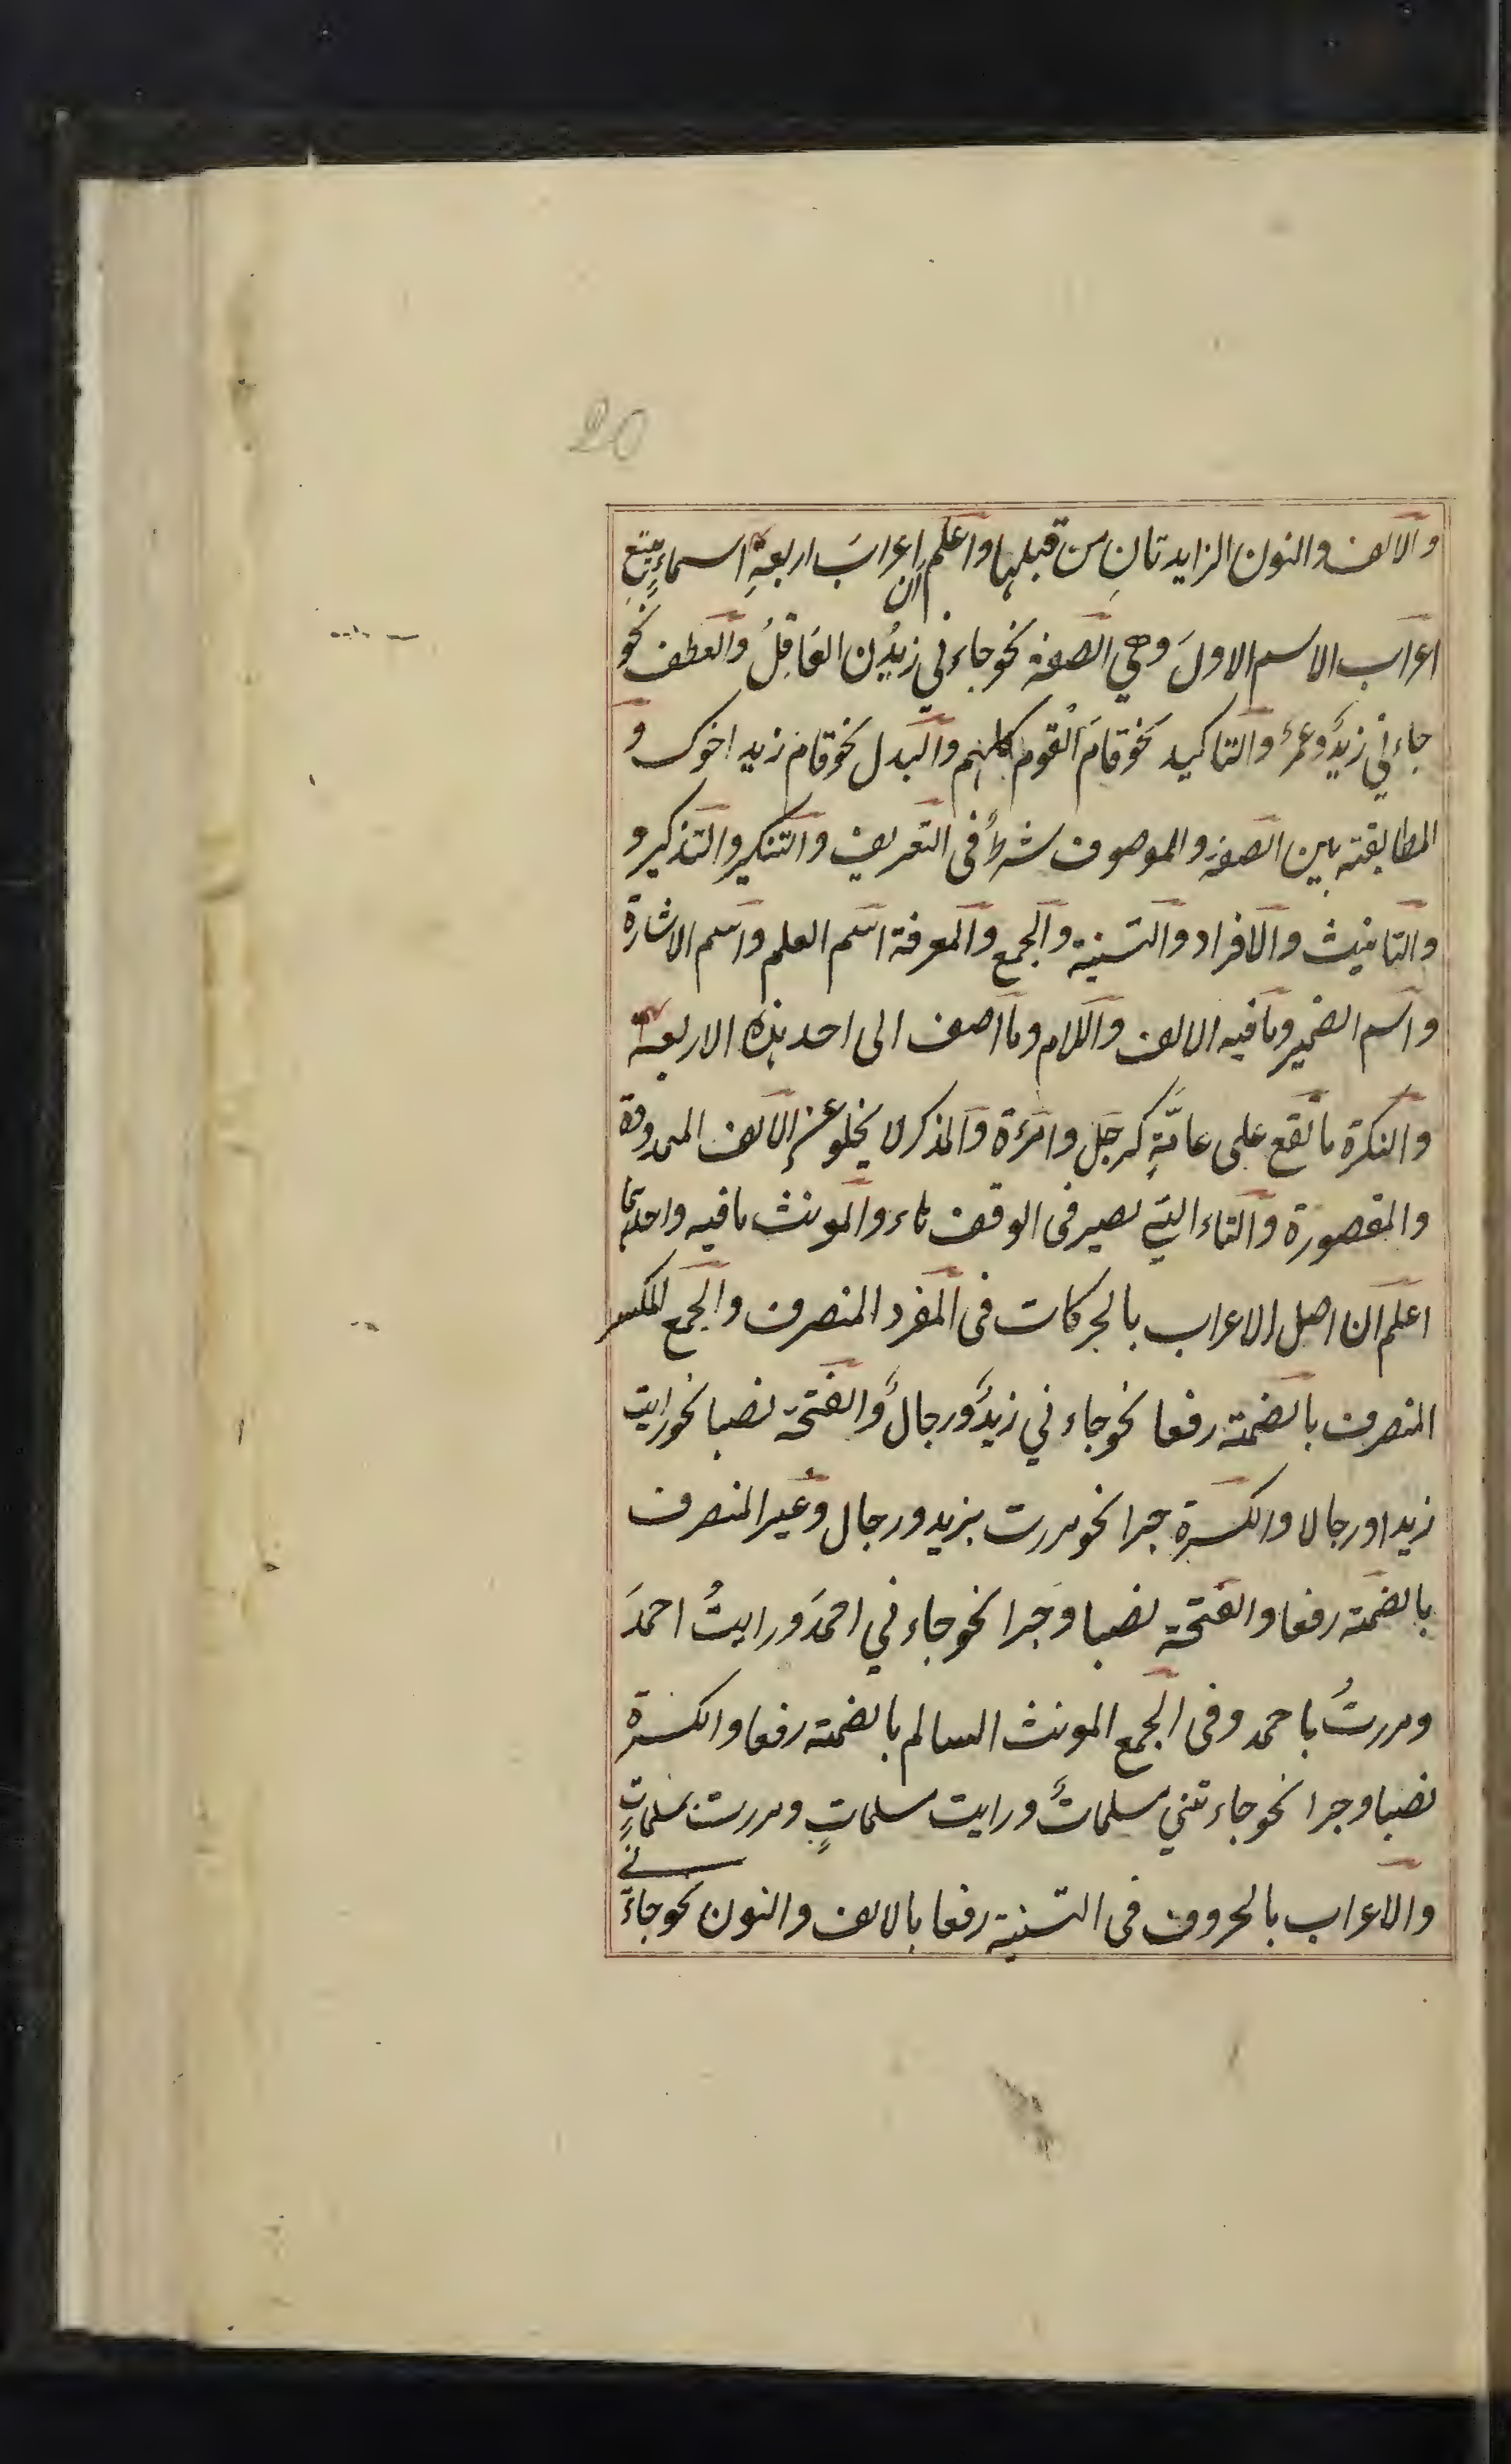 20
والالف والنون الزايدتان من قبلها واعلم ان اعرابَ اربعةِ اسماءٍ يتبع
اعراب الاسم الاولَ وهي الصفة نحو جاءني زيدُن العَاقِلُ والعطف نحو
جاءني زيدٌ وعمرٌ والتاكيد نحو قامَ القوم كلهم والبدل نحو قام زيد اخوك و
المطابقة بين الصفة والموصوف شرطٌ فى التعريف والتنكير والتذكير و
والتانيث والافراد والتثنية والجمع والمعرفة اسم العلم واسم الاشارة
واسم الضمير وما فيه الالف واللام وما اضف الى احد هذه الاربعة
والنكرة ما تقع على عامّةٍ كرجل وامرءة والمذكر لا يخلو عن الالف الممدودة
والمقصورة والتاء التي تصير فى الوقف هاء والمونث ما فيه واحدها
اعلم ان اصل الاعراب بالحركات فى المفرد المنصرف والجمع المكسر
المنصرف بالضمة رفعا نحو جاءني زيدٌ ورجالٌ والفتحة نصبا نحو رايت
زيدا ورجالا والكسرة جرا نحو مررت بزيد ورجال وغير المنصرف
بالضمة رفعا والفتحة نصبا وجرا نحو جاءني احمدُ ورايتُ احمدَ
ومررتُ باحمد وفى الجمع المونث السالم بالضمة رفعا والكسرة
نصبا وجرا نحو جاءتني مسلماتٌ ورايت مسلماتٍ ومررت بمسلماتٍ
والاعراب بالحروف فى التثنية رفعا بالالف والنون نحو جاءَني